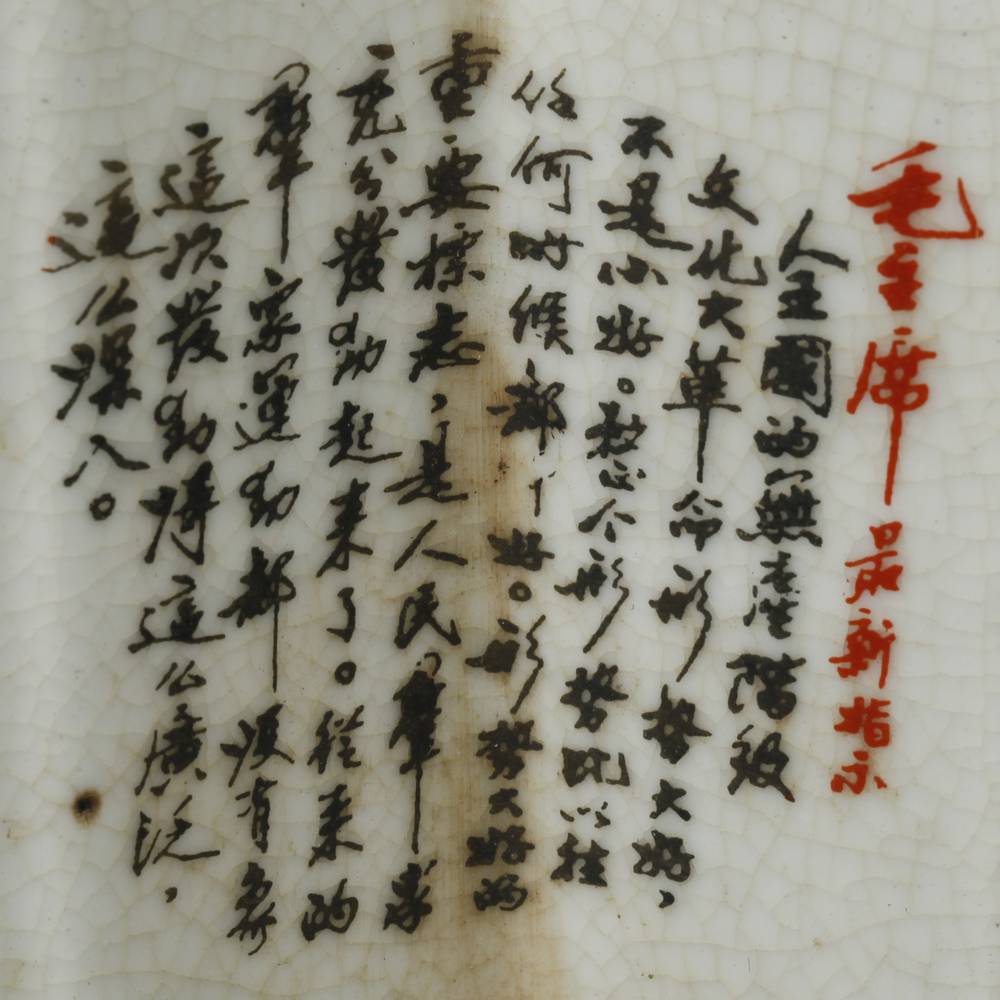 毛主席最新指示
全國的無產階级
文化大革命形势大好，
不是小好。整个形势比以往
任何时候都好。形势大好的
重要標志，是人民羣衆
充分發动起来了。從来的
羣衆運动都没有象
這次發动得這么廣泛，
這么深入。